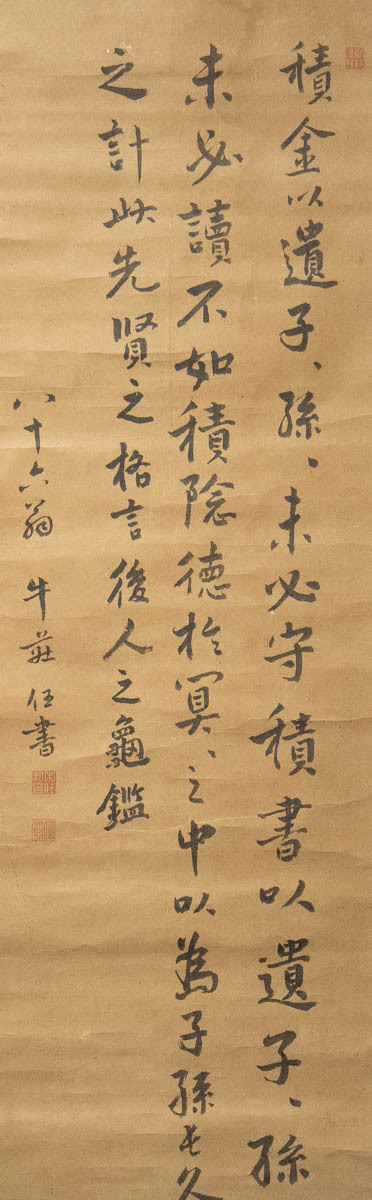 積金以遺子〻孫〻未必守積書以遺子〻孫
未必讀不如積陰德於冥〻之中以為子孫長久
之計此先賢之格言後人之龜鑑
八十六翁 牛莊任書